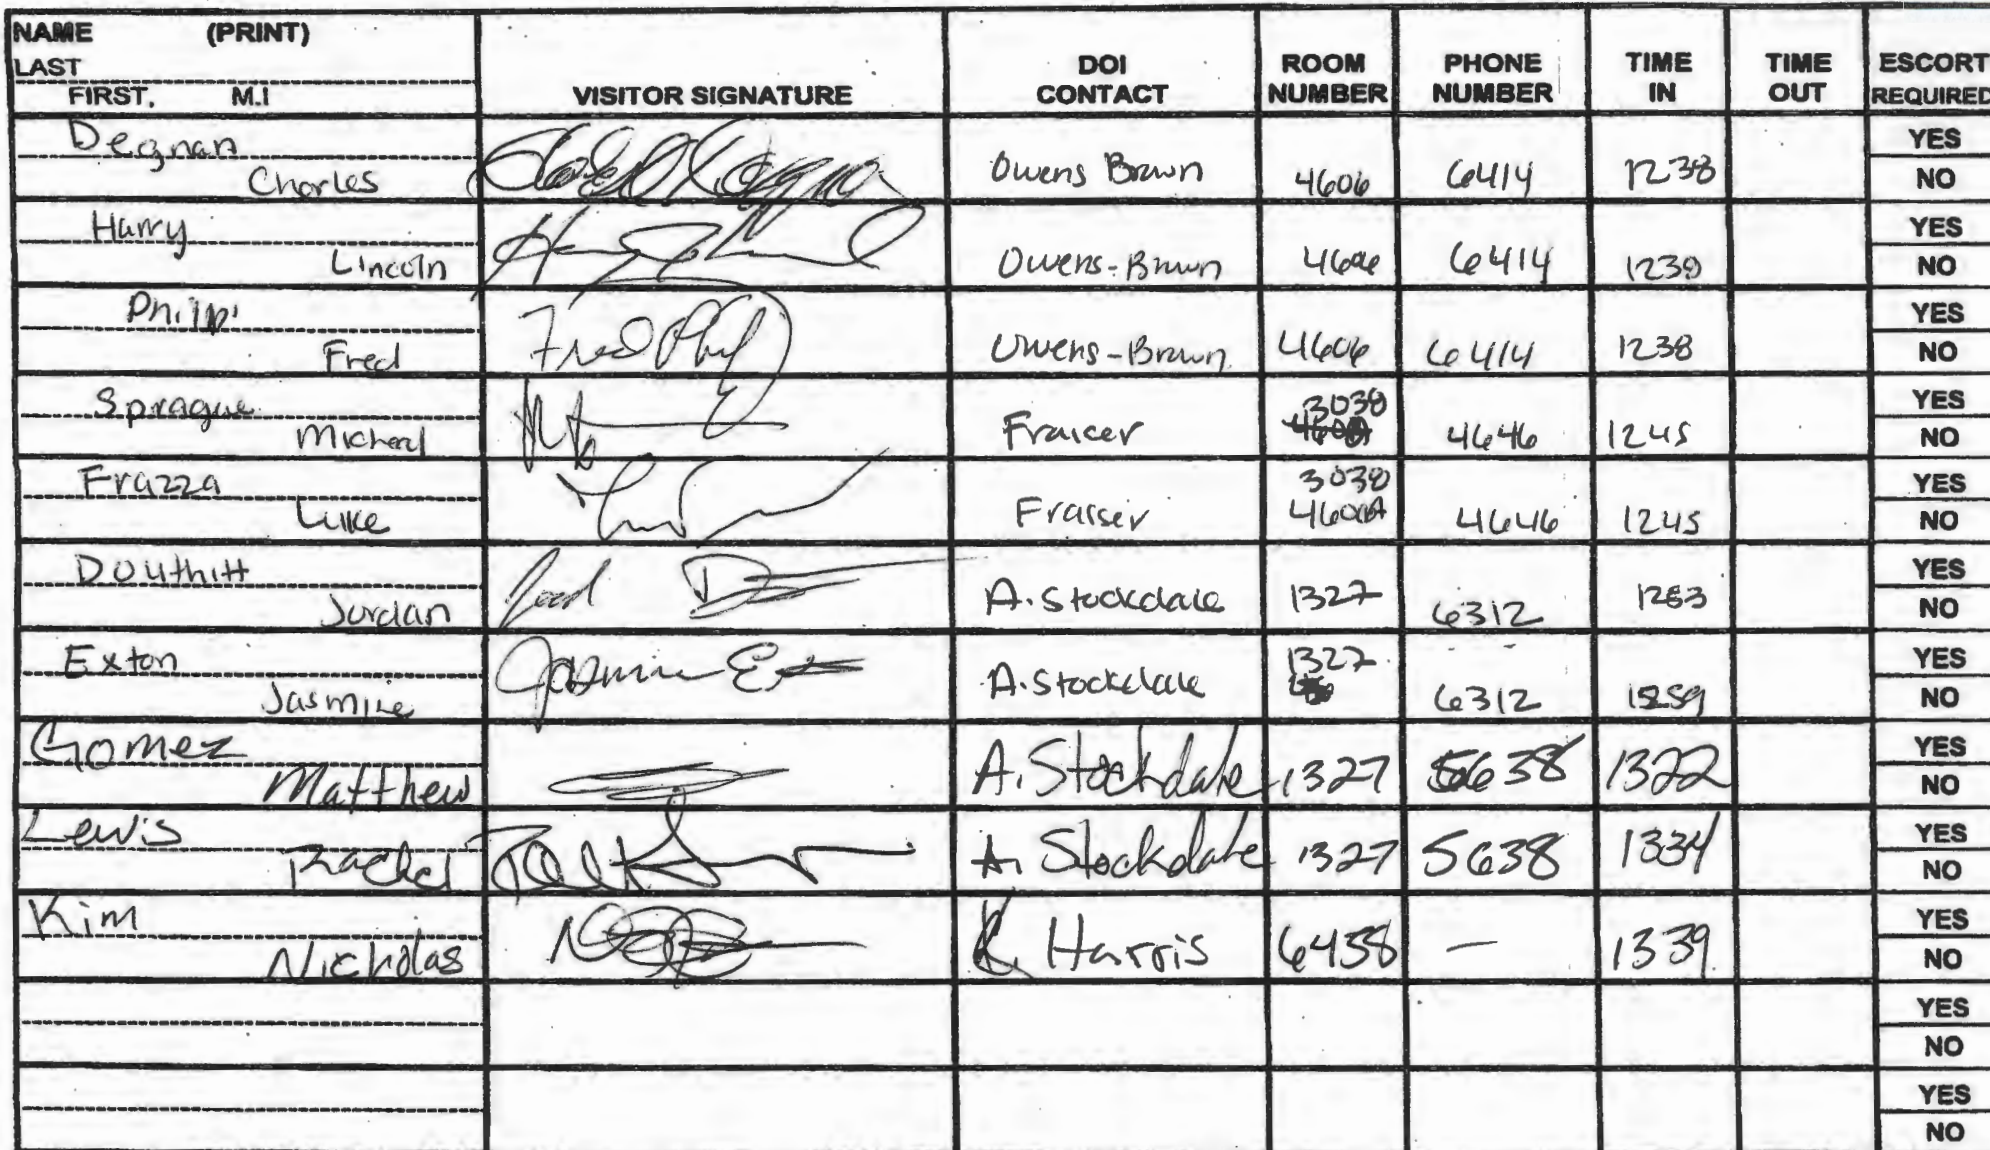 NAME (PRINT)
LAST
FIRST, M.I
VISITOR SIGNATURE
DOI CONTACT
ROOM NUMBER
PHONE NUMBER
TIME IN
TIME OUT
ESCORT REQUIRED
Degnan Charles Owens Brown 4606 6414 1238 YES NO
Harry Lincoln Owens-Brown 4606 6414 1239 YES NO
Philpi Fred Fred Owens-Brown 4606 6414 1238 YES NO
Sprague Michael Fraicer 3038 4646 1245 YES NO
Frazza Luke Fraiser 3038 4646 1245 YES NO
Douthitt Jordan A. Stockdale 1327 6312 1253 YES NO
Exton Jasmine Jasmine A. Stockdale 1327 6312 1259 YES NO
Gomez Matthew A. Stockdale 1327 5638 1322 YES NO
Lewis Rachel A. Stockdale 1327 5638 1334 YES NO
Kim Nicholas K. Harris 6438 — 1339 YES NO
YES NO
YES NO